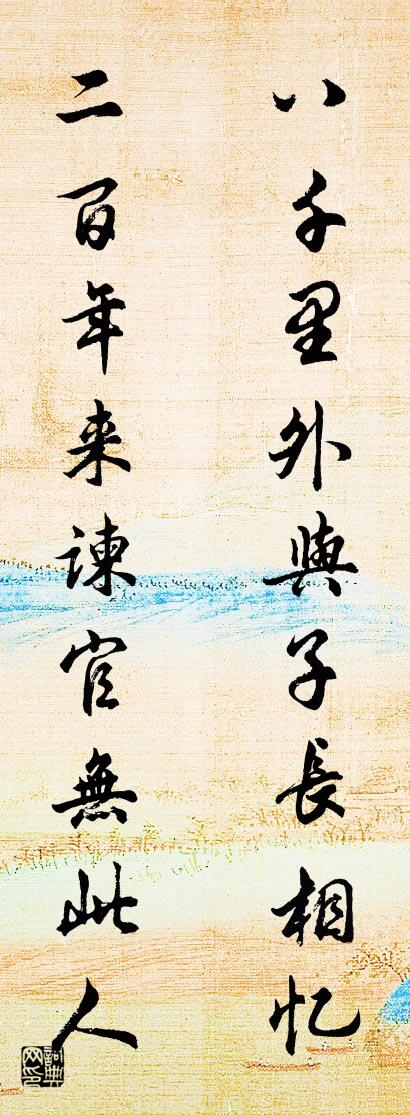 八千里外與子長相忆
二百年来諫官無此人
詞典网印